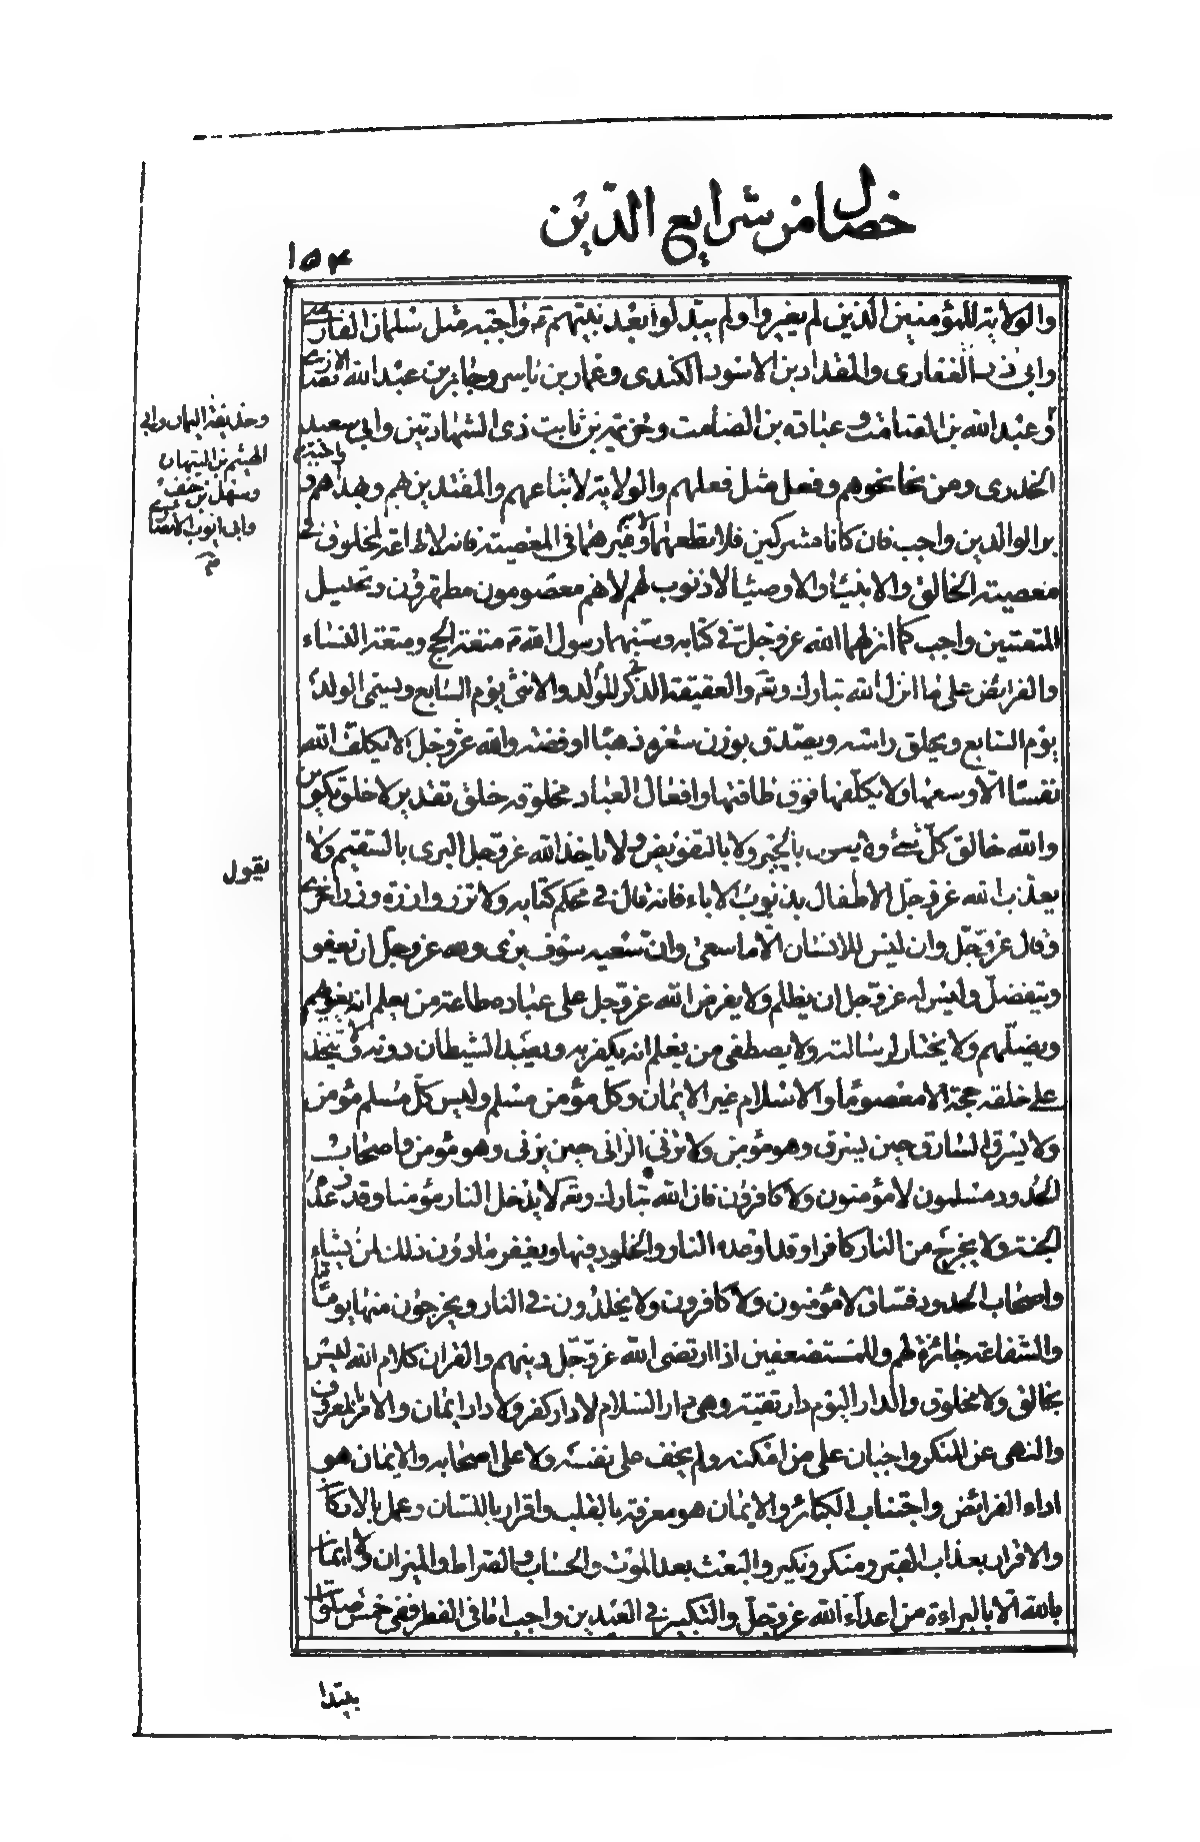 خصال من شرايع الدّين
١٥٤
والولاية للمؤمنين الّذين لم يغيروا ولم يبدّلوا بعد نبيّهم ص واجبة مثل سلمان الفارسي
وابى ذر الغفارى والمقداد بن الاسود الكندى وعمار بن ياسر وجابر بن عبد الله الانصارى
وحذيفة اليمان وابى
الهيثم بن التيهان
وسهل بن حنيف
وابى ايوب الانصارى
وعبد الله بن الصّامت وعبادة بن الصّامت وخزيمة بن ثابت ذى الشهادتين وابى سعيد
الخدرى ومن نحا نحوهم وفعل مثل فعلهم والولاية لاتباعهم والمقتدين بهم وبهداهم واجبة
بر الوالدين واجب فان كانا مشركين فلا تطعهما ولا غيرهما فى المعصية فانه لا طاعة لمخلوق فى
معصية الخالق والانبياء والاوصياء لا ذنوب لهم لانهم معصومون مطهرون وتحليل
المتعتين واجب كما انزلهما الله عز وجلّ في كتابه وسنّهما رسول الله ص متعة الحج ومتعة النساء
والفرائض على ما انزل الله تبارك وتع والعقيقة للولد الذكر والانثى يوم السّابع ويسمّى الولد
يوم السّابع ويحلق راسه ويصّدق بوزن شعره ذهبا او فضة والله عزّ وجلّ لا يكلّف الله
نفسا الّا وسعها ولا يكلّفها فوق طاقتها وافعال العباد مخلوقة خلق تقدير لا خلق تكوين
والله خالق كلّ شئ ولا يقول بالجبر ولا بالتفويض ولا ياخذ الله عز وجل البرى بالسقيم ولا
يعذّب الله عز وجلّ الاطفال بذنوب الاباء فانه قال في محكم كتابه ولا تزر وازرة وزر اخرى
وقال عز وجّل وان ليس للانسان الّا ما سعى وانّ سعيه سوف يرى ولله عز وجلّ ان يعفو
ويتفضلّ وليس له عز وجل ان يظلم ولا يفرض الله عز وجل على عباده طاعة من يعلم انه يغويهم
ويضلّهم ولا يختار لرسالته ولا يصطفى من يعلم انه يكفر به ويعبد الشيطان دونه ولا يتخذ
على خلقه حجة الا معصوما والاسلام غير الايمان وكل مؤمن مسلم وليس كلّ مسلم مؤمن
ولا يسرق السّارق حين يسرق وهو مؤمن ولا يزنى الزانى حين يزنى وهو مؤمن واصحاب
الحدود مسلمون لا مؤمنون ولا كافرون فان الله تبارك وتع لا يدخل النار مؤمنا وقد وعده
الجنة ولا يخرج من النار كافرا وقد اوعده النار والخلود فيها ويغفر ما دون ذلك لمن يشاء
واصحاب الحدود فسّاق لا مؤمنون ولا كافرون ولا يخلدون في النار ويخرجون منها يوما
والشفاعة جائزة لهم وللمستضعفين اذا ارتضى الله عز وجّل دينهم والقران كلام الله ليس
بخالق ولا مخلوق والدار اليوم دار تقية وهى دار السلام لا دار كفر ولا دار ايمان والامر بالمعروف
والنهى عن المنكر واجبان على من امكنه ولم يخف على نفسه ولا على اصحابه والايمان هو
اداء الفرائض واجتناب الكبائر والايمان هو معرفة بالقلب واقرار باللسان وعمل بالاركان
والاقرار بعذاب القبر ومنكر ونكير والبعث بعد الموت والحساب والصراط والميزان ولا ايمان
بالله الّا بالبراءة من اعداء الله عز وجلّ والتكبير في العيدين واجب اما فى الفطر ففى خمس صلوات
يقول
يبتدا